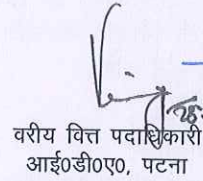 वरीय वित्त पदाधिकारी
आई0डी0ए0, पटना